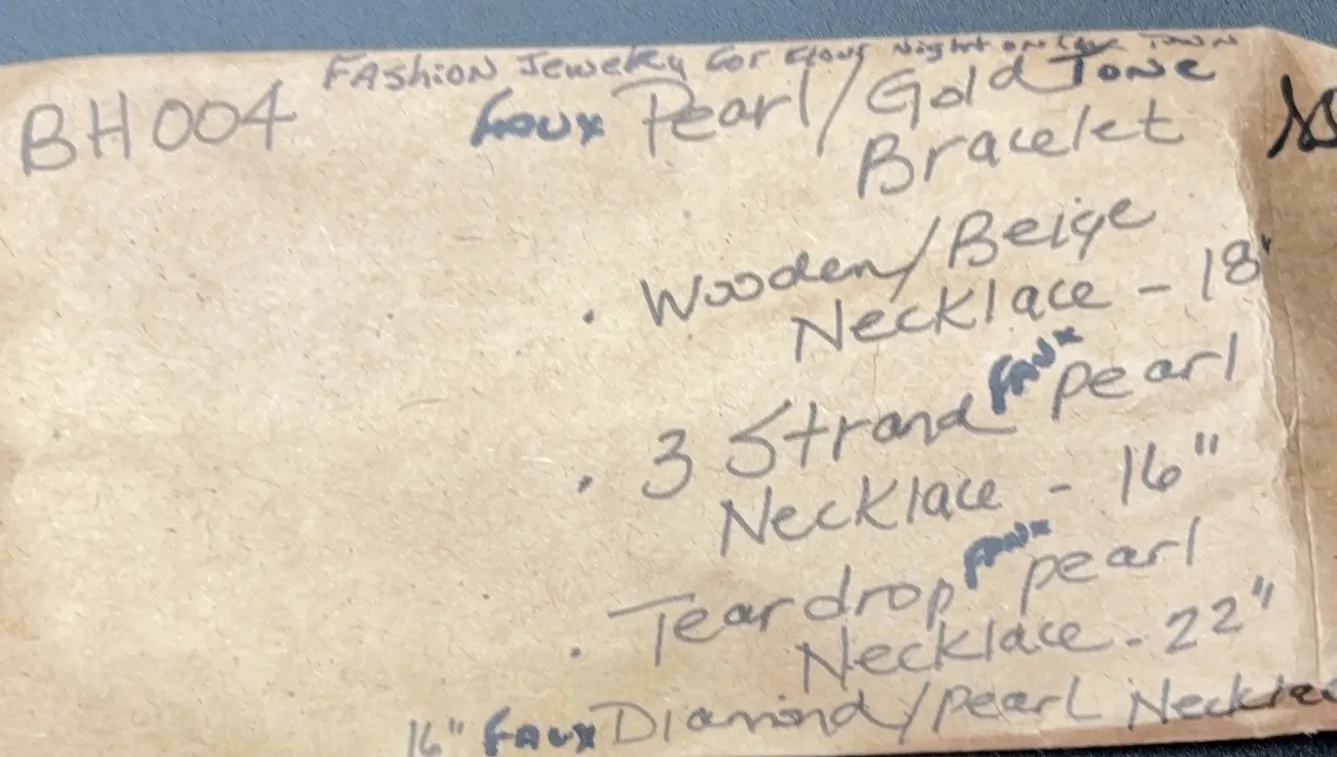 Fashion Jewelry for Your Night on the Town
BH004 Faux Pearl/Gold Tone
Bracelet
. Wooden/Beige
Necklace - 18"
. 3 Strand Faux pearl
Necklace - 16"
. Teardrop Faux pearl
Necklace - 22"
16" Faux Diamond/pearl Necklac